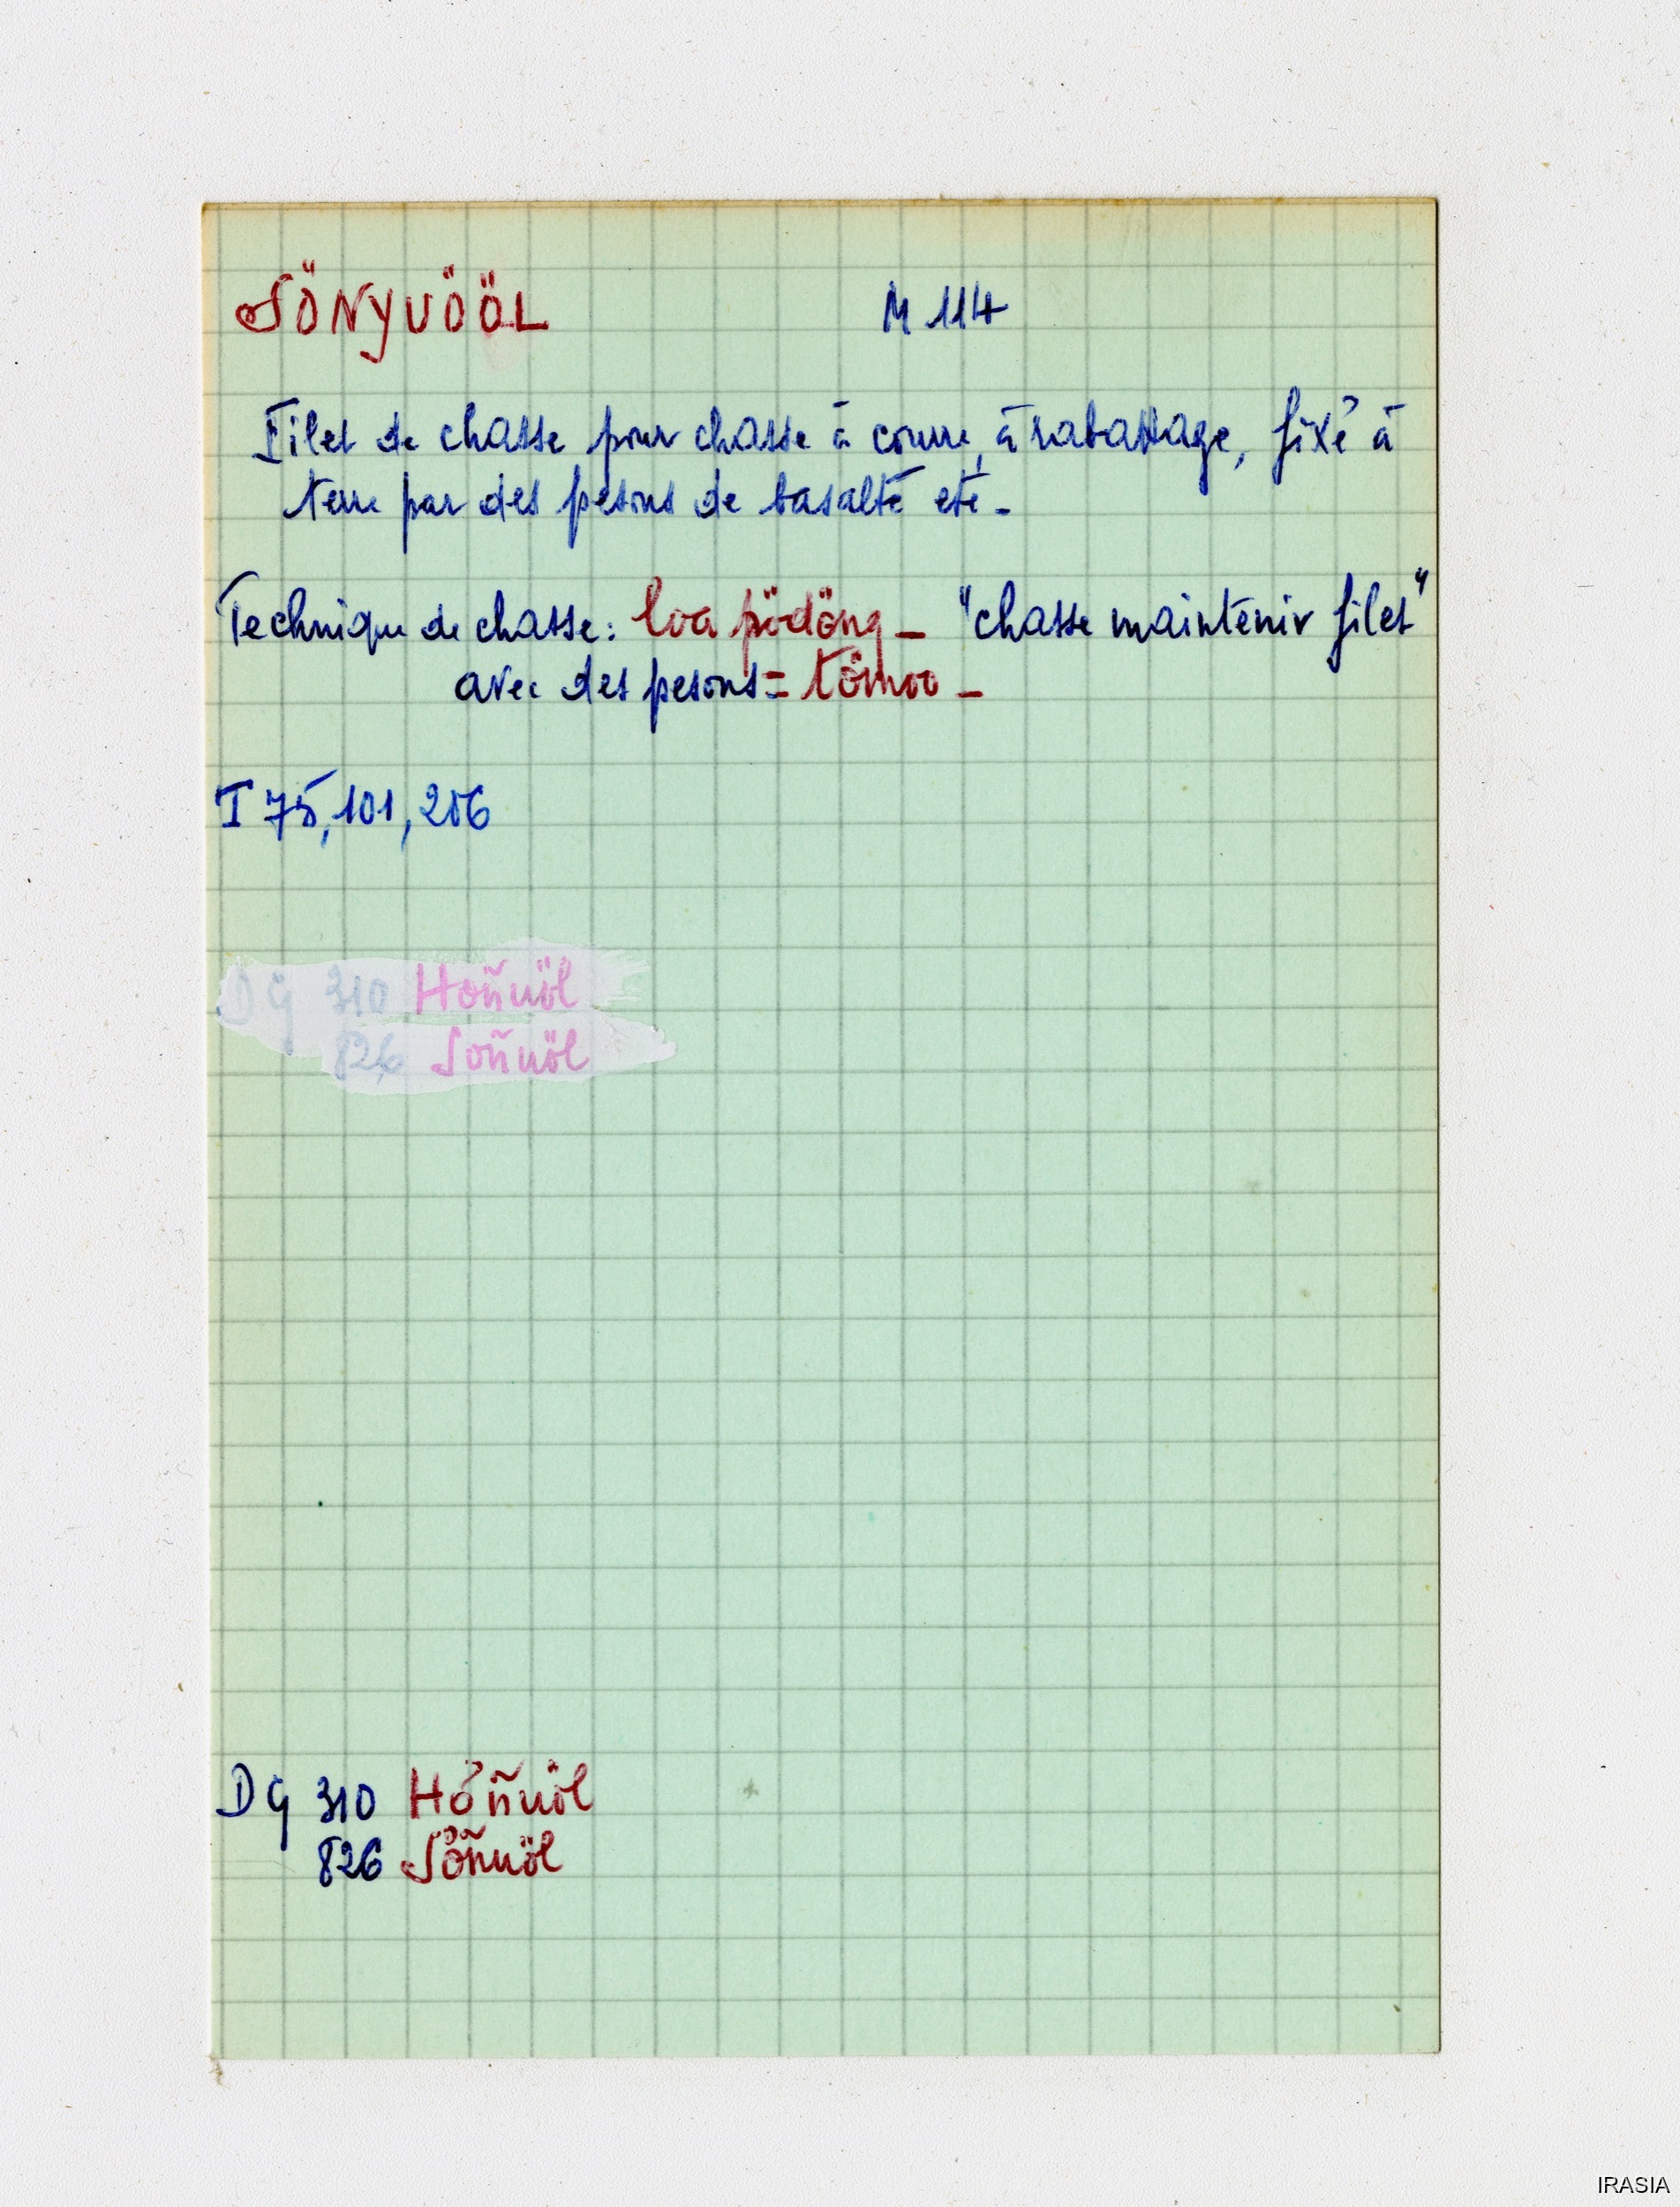 SÖNYUÖÖL M 114
Filet de chasse pour chasse à courre, à rabattage, fixé à
terre par des pesons de basalte etc -
Technique de chasse : loa pödöng - "chasse maintenir filet"
avec des pesons = tömoo -
T 75, 101, 206
DG 310 Hoñuöl
826 Soñuöl
DG 310 Hơ̆ñuöl
826 Sơ̆ñuöl
IRASIA